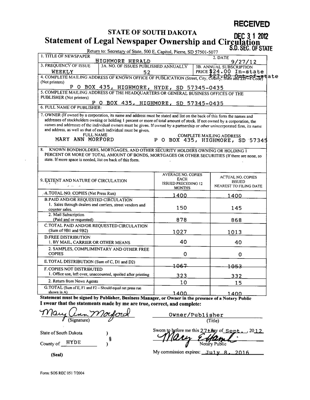 RECEIVED
DEC 31 2012
S.D. SEC. OF STATE
STATE OF SOUTH DAKOTA
Statement of Legal Newspaper Ownership and Circulation
Return to: Secretary of State, 500 E. Capitol, Pierre, SD 57501-5077
1. TITLE OF NEWSPAPER
HIGHMORE HERALD
2. DATE
9/27/12
3. FREQUENCY OF ISSUE
WEEKLY
3A. NO. OF ISSUES PUBLISHED ANNUALLY
52
3B. ANNUAL SUBSCRIPTION
PRICE $24.00 In-state
4. COMPLETE MAILING ADDRESS OF KNOWN OFFICE OF PUBLICATION (Street, City,
(Not printers)
P O BOX 435, HIGHMORE, HYDE, SD 57345-0435
5. COMPLETE MAILING ADDRESS OF THE HEADQUARTERS OR GENERAL BUSINESS OFFICES OF THE
PUBLISHER (Not printers)
P O BOX 435, HIGHMORE, SD 57345-0435
6. FULL NAME OF PUBLISHER:
7. OWNER (If owned by a corporation, its name and address must be stated and list on the back of this form the names and
addresses of stockholders owning or holding 1 percent or more of total amount of stock. If not owned by a corporation, the
names and addresses of the individual owners must be given. If owned by a partnership or other unincorporated firm, its name
and address, as well as that of each individual must be given.
FULL NAME
COMPLETE MAILING ADDRESS
MARY ANN MORFORD
P O BOX 435, HIGHMORE, SD 57345
8. KNOWN BONDHOLDERS, MORTGAGES, AND OTHER SECURITY HOLDERS OWNING OR HOLDING 1
PERCENT OR MORE OF TOTAL AMOUNT OF BONDS, MORTGAGES OR OTHER SECURITIES (If there are none, so
state. If more space is needed, list on back of this form.
9. EXTENT AND NATURE OF CIRCULATION
AVERAGE NO. COPIES
EACH
ISSUED PRECEDING 12
MONTHS
ACTUAL NO. COPIES
ISSUED
NEAREST TO FILING DATE
A. TOTAL NO. COPIES (Net Press Run)
1400
1400
B. PAID AND/OR REQUESTED CIRCULATION
1. Sales through dealers and carriers, street vendors and
counter sales.
150
145
2. Mail Subscription
(Paid and/or requested)
878
868
C. TOTAL PAID AND/OR REQUESTED CIRCULATION
(Sum of 9B1 and 9B2)
1027
1013
D. FREE DISTRIBUTION
1. BY MAIL, CARRIER OR OTHER MEANS
40
40
2. SAMPLES, COMPLIMENTARY AND OTHER FREE
COPIES
0
0
E. TOTAL DISTRIBUTION (Sum of C, D1 and D2)
1067
1053
F. COPIES NOT DISTRIBUTED
1. Office use, left over, unaccounted, spoiled after printing
323
332
2. Return from News Agents
10
15
G. TOTAL (Sum of E, F1 and F2 – Should equal net press run
shown in A)
1400
1400
Statement must be signed by Publisher, Business Manager, or Owner in the presence of a Notary Public
I swear that the statements made by me are true, correct, and complete:
Mary Ann Morford
Owner/Publisher
(Signature)
(Title)
State of South Dakota )
§
County of HYDE )
(Seal)
Sworn to before me this 27 day of Sept., 2012
Notary Public
My commission expires: July 8, 2016